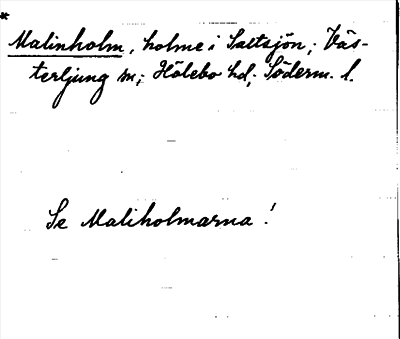 *
Malinholm, holme i Saltsjön, Väs-
terljung sn; Hölebo hd; Söderm. l.
Se Maliholmarna!